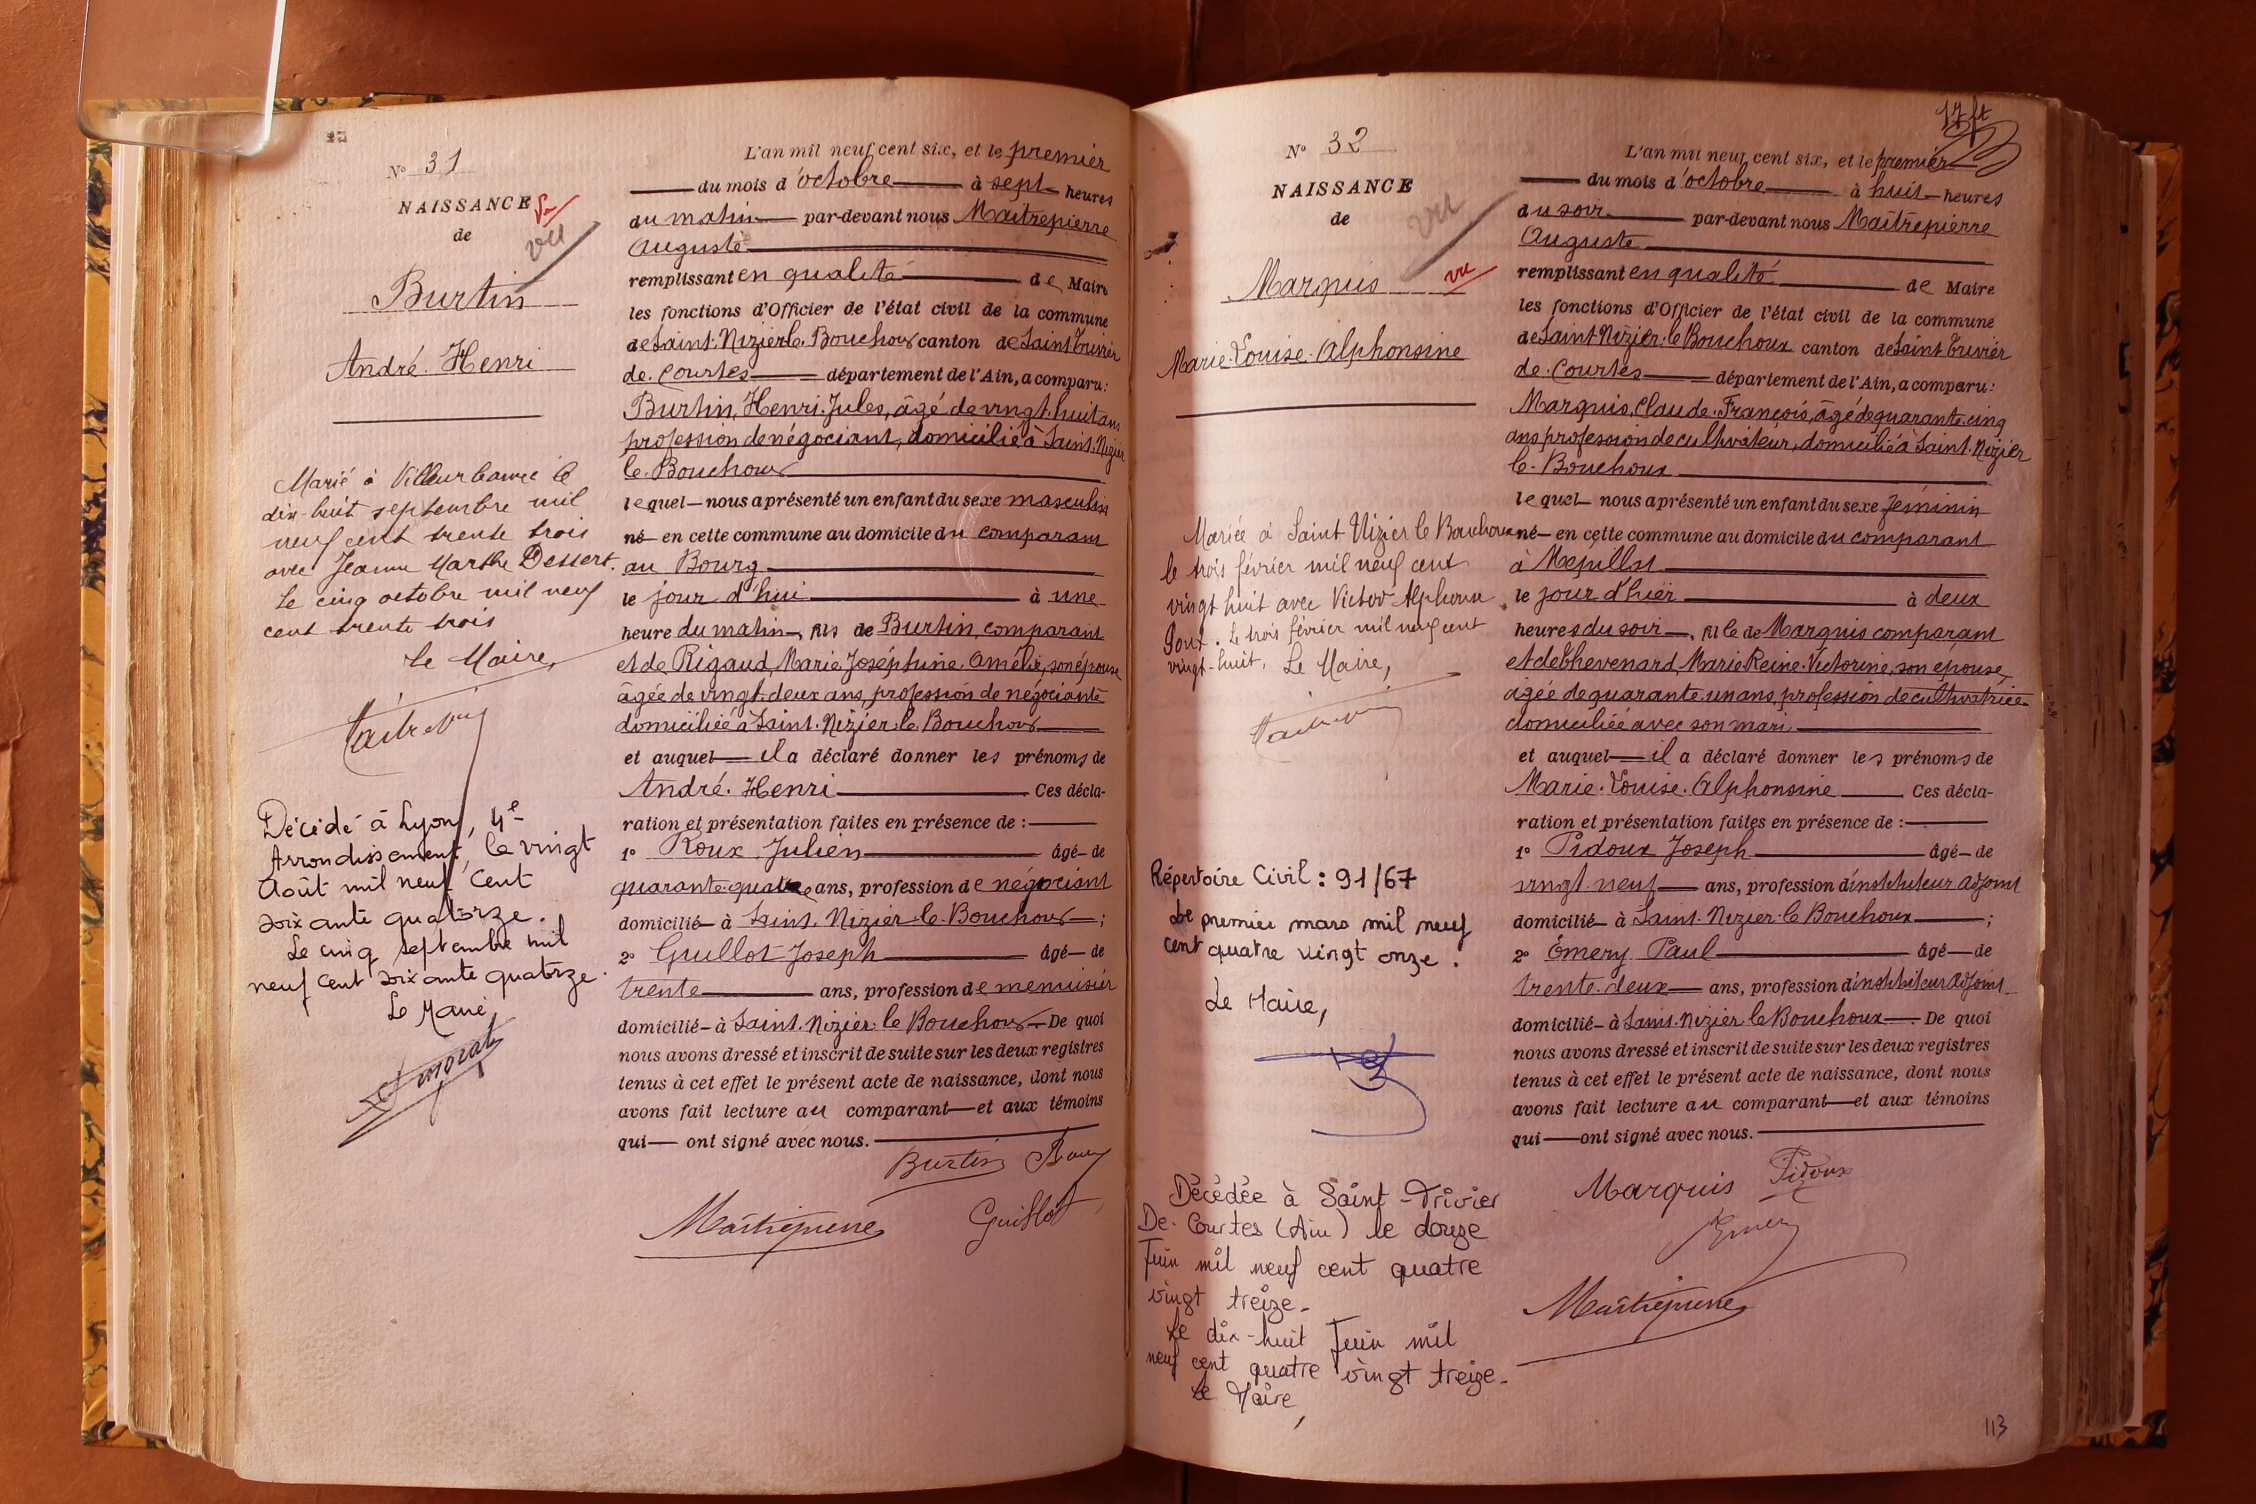 N° 31
NAISSANCE
de
vu
Burtin
André. Henri
Marié à Villeurbanne le
dix-huit septembre mil
neuf cent trente trois
avec Jeanne Marthe Dessert.
Le cinq octobre mil neuf
cent trente trois
Le Maire,
Décédé à Lyon, 4e
Arrondissement, le vingt
Août mil neuf cent
soixante quatorze.
Le cinq septembre mil
neuf cent soixante quatorze.
Le Maire,
L'an mil neuf cent six, et le premier
du mois d'octobre à sept heures
du matin par-devant nous Maitrepierre
Auguste
remplissant en qualité de Maire
les fonctions d'Officier de l'état civil de la commune
de Saint-Nizier-le-Bouchoux canton de Saint Trivier
de. Courtes département de l'Ain, a comparu:
Burtin, Henri. Jules, âgé de vingt. huit ans
profession de négociant, domicilié à Saint. Nizier
le. Bouchoux
lequel nous a présenté un enfant du sexe masculin
né en cette commune au domicile du comparant
au Bourg
le jour d'hui à une
heure du matin, fils de Burtin, comparant
et de Rigaud, Marie. Joséphine. Amélie, son épouse
âgée de vingt. deux ans, profession de négociante
domiciliée à Saint. Nizier. le. Bouchoux
et auquel il a déclaré donner les prénoms de
André. Henri Ces décla-
ration et présentation faites en présence de :
1° Roux Julien âgé de
quarante. quatre ans, profession de négociant
domicilié à Saint. Nizier. le. Bouchoux ;
2° Guillot Joseph âgé de
trente ans, profession de menuisier
domicilié à Saint. Nizier. le Bouchoux. De quoi
nous avons dressé et inscrit de suite sur les deux registres
tenus à cet effet le présent acte de naissance, dont nous
avons fait lecture au comparant et aux témoins
qui ont signé avec nous.
Burtin Roux
Maitrepierre Guillot
17 ft
N° 32
NAISSANCE
de
vu
vu
Marquis
Marie. Louise. Alphonsine
Mariée à Saint Nizier le Bouchoux
le trois février mil neuf cent
vingt huit avec Victor Alphonse
Le trois février mil neuf cent
vingt-huit. Le Maire,
Répertoire Civil : 91/67
Le premier mars mil neuf
cent quatre vingt onze.
Le Maire,
Décédée à Saint-Trivier
De-Courtes (Ain) le douze
Juin mil neuf cent quatre
vingt treize-
Le dix-huit Juin mil
neuf cent quatre vingt treize-
Le Maire,
L'an mil neuf cent six, et le premier
du mois d'octobre à huit heures
du soir par-devant nous Maitrepierre
Auguste
remplissant en qualité de Maire
les fonctions d'Officier de l'état civil de la commune
de Saint-Nizier-le Bouchoux canton de Saint Trivier
de. Courtes département de l'Ain, a comparu:
Marquis, Claude. François, âgé de quarante. cinq
ans profession de cultivateur, domicilié à Saint. Nizier
le. Bouchoux
lequel nous a présenté un enfant du sexe féminin
né en cette commune au domicile du comparant
à
le jour d'hier à deux
heures du soir, fille de Marquis comparant
et de Chevenard, Marie. Reine. Victorine, son épouse,
âgée de quarante. un ans, profession de cultivatrice
domiciliée avec son mari
et auquel il a déclaré donner les prénoms de
Marie. Louise. Alphonsine Ces décla-
ration et présentation faites en présence de :
1° Pidoux Joseph âgé de
vingt neuf ans, profession d'instituteur adjoint
domicilié à Saint. Nizier. le Bouchoux ;
2° Émery Paul âgé de
trente. deux ans, profession d'instituteur adjoint
domicilié à Saint. Nizier le Bouchoux. De quoi
nous avons dressé et inscrit de suite sur les deux registres
tenus à cet effet le présent acte de naissance, dont nous
avons fait lecture au comparant et aux témoins
qui ont signé avec nous.
Marquis Pidoux
Emery
Maitrepierre
113